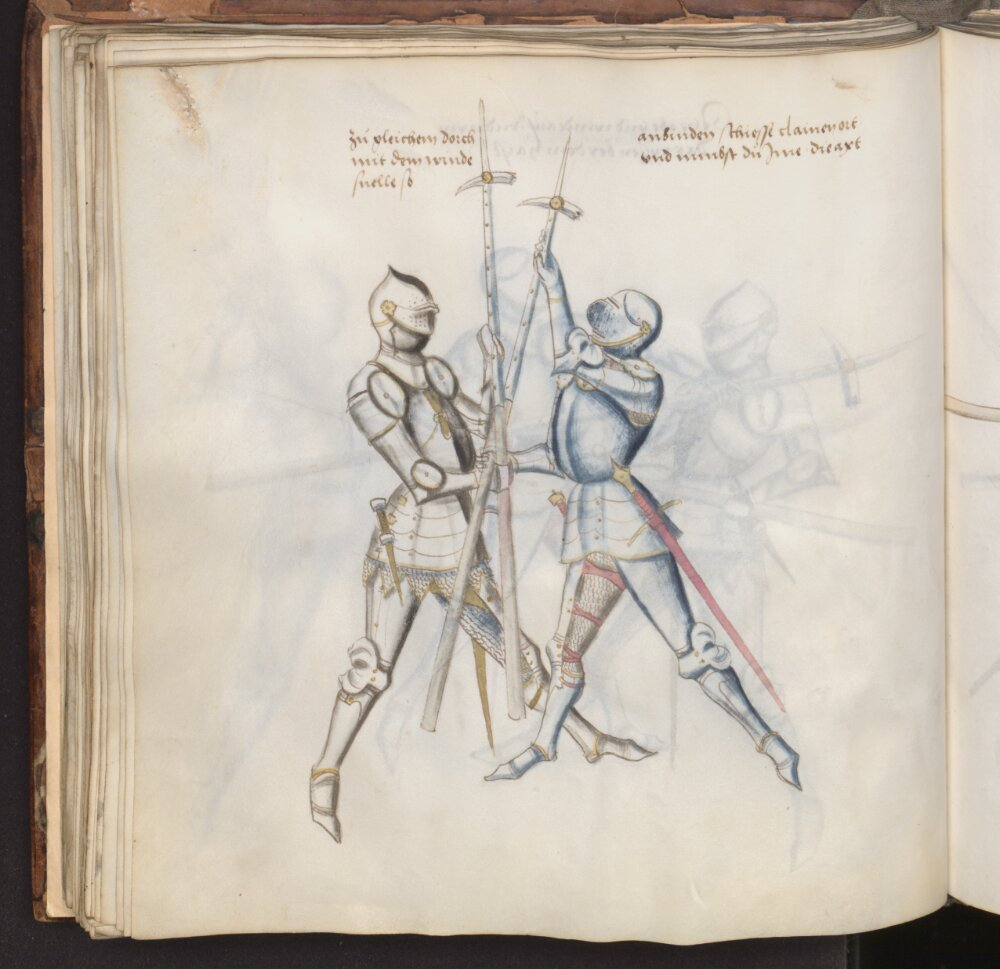 zu gleichem dorch
mit dem winde
snelle so
anbinden schiesß clainen ort
vnd nimbst du Ime die axt